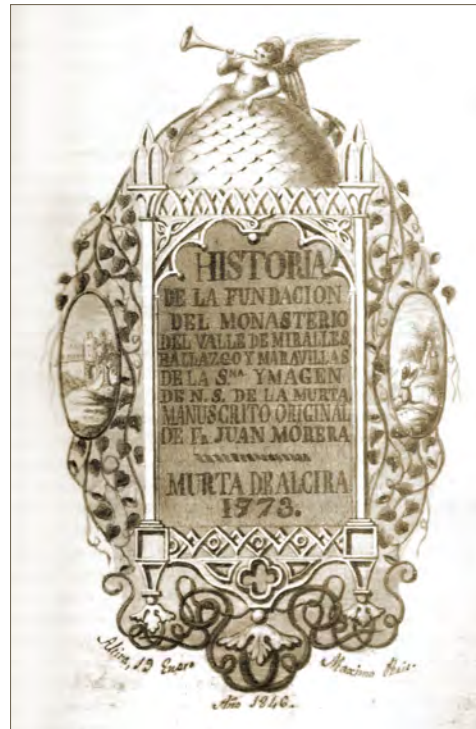 HISTORIA
DE LA FUNDACION
DEL MONASTERIO
DEL VALLE DE MIRALLES,
HALLAZGO Y MARAVILLAS
DE LA S.NA YMAGEN
DE N. S. DE LA MURTA
MANUSCRITO ORIGINAL
DE Fr. JUAN MORERA
MURTA DE ALCIRA
1773.
Alcira, 19 Enero
Maximo
Año 1846.